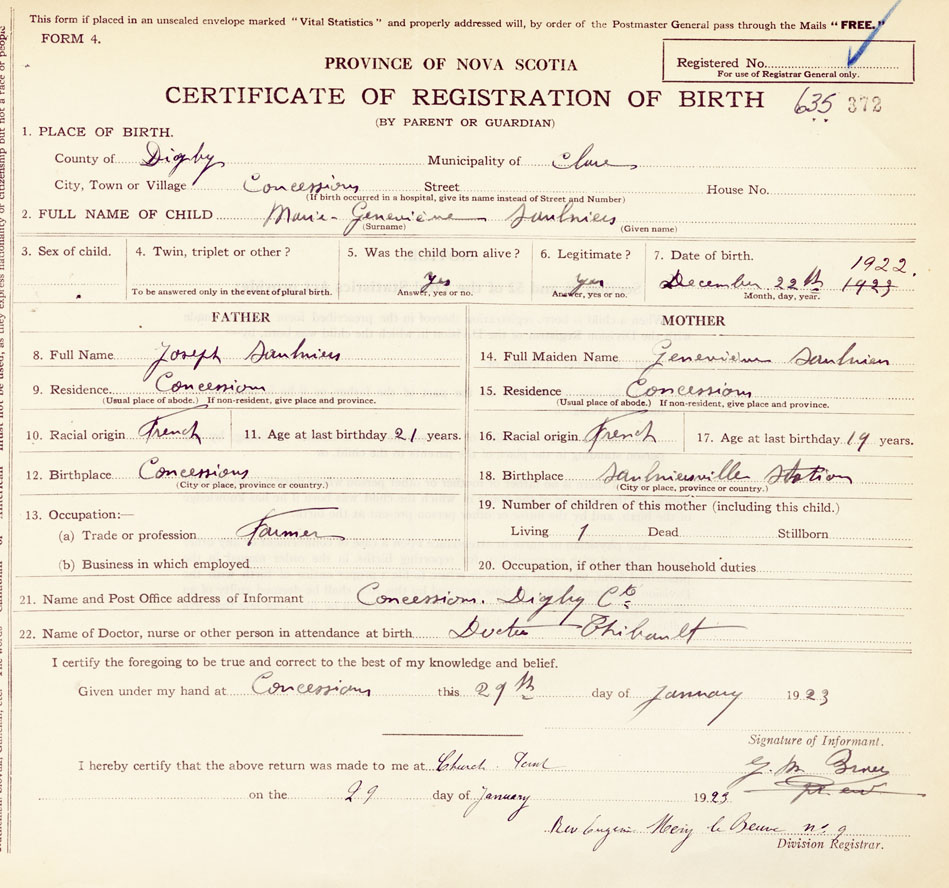 This form if placed in an unsealed envelope marked "Vital Statistics" and properly addressed will, by order of the Postmaster General pass through the Mails "FREE."
FORM 4.
PROVINCE OF NOVA SCOTIA
Registered No.
For use of Registrar General only.
CERTIFICATE OF REGISTRATION OF BIRTH 635 372
(BY PARENT OR GUARDIAN)
1. PLACE OF BIRTH.
County of Digby Municipality of Clare
City, Town or Village Concessions Street House No.
(If birth occurred in a hospital, give its name instead of Street and Number)
2. FULL NAME OF CHILD Marie-Genevieve Saulniers
(Surname) (Given name)
3. Sex of child. 4. Twin, triplet or other? 5. Was the child born alive? 6. Legitimate? 7. Date of birth. 1922.
Yes Yes December 22th 1923
To be answered only in the event of plural birth. Answer, yes or no. Answer, yes or no. Month, day, year.
FATHER MOTHER
8. Full Name Joseph Saulniers 14. Full Maiden Name Genevieve Saulnier
9. Residence. Concessions 15. Residence Concessions
(Usual place of abode.) If non-resident, give place and province. (Usual place of abode.) If non-resident, give place and province.
10. Racial origin French 11. Age at last birthday 21 years. 16. Racial origin French 17. Age at last birthday 19 years.
12. Birthplace Concessions 18. Birthplace Saulniersville Station
(City or place, province or country.) (City or place, province or country.)
19. Number of children of this mother (including this child.)
13. Occupation:—
(a) Trade or profession Farmer Living 1 Dead Stillborn
(b) Business in which employed 20. Occupation, if other than household duties
21. Name and Post Office address of Informant Concessions. Digby Cts
22. Name of Doctor, nurse or other person in attendance at birth Doctor Thibault
I certify the foregoing to be true and correct to the best of my knowledge and belief.
Given under my hand at Concessions this 29th day of January 1923
Signature of Informant.
I hereby certify that the above return was made to me at Church Point
on the 29 day of January 1923
Rev Eugene le no 9
Division Registrar.